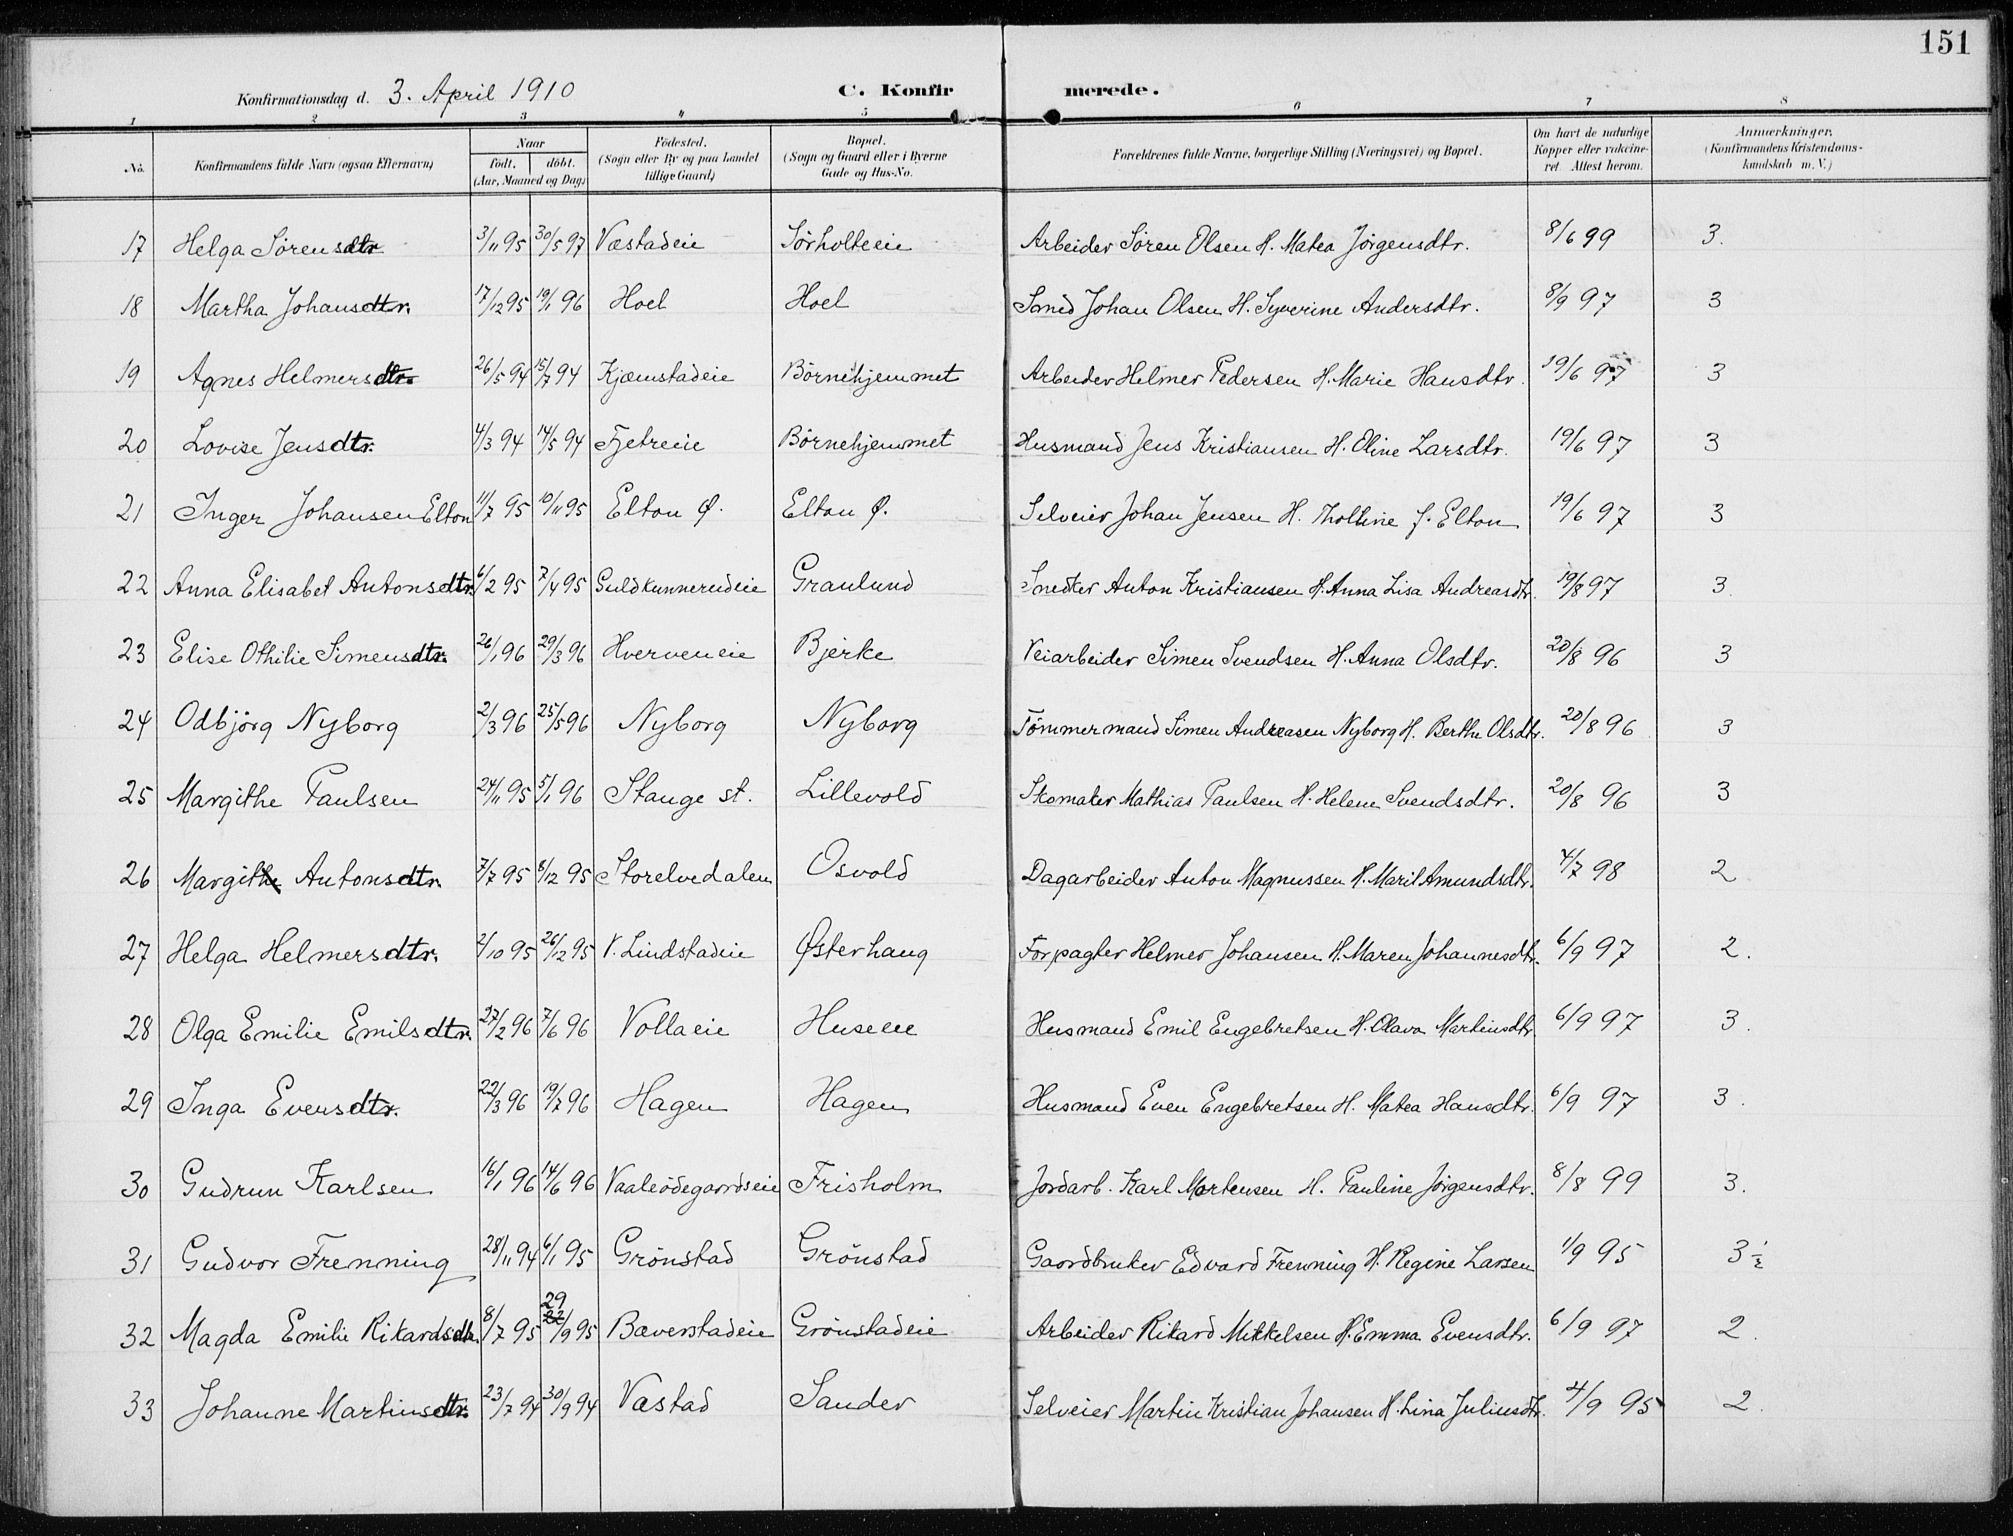 151
Konfirmationsdag d. 3. April 1910 C. Konfirmerede.
1 2 3 4 5 6 7 8
No. Konfirmandens fulde Navn (ogsaa Efternavn) Naar født. døbt. (Aar, Maaned og Dag) Fødested. (Sogn eller By og paa Landet tillige Gaard) Bopæl. (Sogn og Gaard eller i Byerne Gade og Hus-No. Forældrenes fulde Navne, borgerlige Stilling (Næringsvei) og Bopæl. Om havt de naturlige Kopper eller vakcineret. Attest herom. Anmærkninger. (Konfirmandens Kristendomskundskab m. V.)
17 Helga Sørensdtr 3/11 95 30/5 97 Væstadeie Sørholteeie Arbeider Søren Olsen H. Matea Jørgensdtr. 8/6 99 3.
18 Martha Johansdtr. 17/12 95 19/1 96 Hoel Hoel Smed Johan Olsen H. Syverine Andersdtr. 8/9 97 3
19 Agnes Helmersdtr. 26/5 94 15/7 94 Kjæmstadeie Børnehjemmet Arbeider Helmer Pedersen H. Marie Hansdtr. 19/6 97 3
20 Lovise Jensdtr. 4/3 94 14/5 94 Fjetreeie Børnehjemmet Husmand Jens Kristiansen H. Oline Larsdtr. 19/6 97 3
21 Inger Johansen Elton 11/7 95 10/11 95 Elton Ø. Elton Ø. Selveier Johan Jensen H. Tholline f. Elton 19/6 97 3
22 Anna Elisabet Antonsdtr. 6/2 95 7/4 95 Guldkunnerudeie Granlund Snedker Anton Kristiansen H. Anna Lisa Andreasdtr. 19/8 97 3.
23 Elise Othilie Simensdtr. 26/1 96 29/3 96 Hverveneie Bjerke Veiarbeider Simen Svendsen H. Anna Olsdtr. 20/8 96 3
24 Odbjørg Nyborg 2/3 96 25/5 96 Nyborg Nyborg Tømmermand Simen Andreasen Nyborg H. Berthe Olsdtr. 20/8 96 3
25 Margithe Paulsen 24/11 95 5/1 96 Stange st. Lillevold Skomaker Mathias Paulsen H. Helene Svendsdtr. 20/8 96 3
26 Margithe Antonsdtr. 7/7 95 8/12 95 Storelvedalen Osvold Dagarbeider Anton Magnussen H. Marit Amundsdtr. 4/7 98 2
27 Helga Helmersdtr. 2/10 95 26/12 95 V. Lindstadeie Østerhaug Forpagter Helmer Johansen H. Maren Johannesdtr. 6/9 97 2.
28 Olga Emilie Emilsdtr. 27/2 96 7/6 96 Vollaeie Huseeie Husmand Emil Engebretsen H. Olava Martinsdtr. 6/9 97 3.
29 Inga Evensdtr. 22/3 96 19/7 96 Hagen Hagen Husmand Even Engebretsen H. Matea Hansdtr. 6/9 97 3.
30 Gudrun Karlsen 16/1 96 14/6 96 Vaaleødegaardseie Frisholm Jordarb. Karl Mortensen H. Pauline Jørgensdtr. 8/8 99 3.
31 Gudvor Frenning 28/11 94 6/1 95 Grønstad Grønstad Gaardbruker Edvard Frenning H. Regine Larsen 1/9 95 3 1/2
32 Magda Emilie Rikardsdtr. 8/7 95 29/9 95 Bæverstadeie Grønstadeie Arbeider Rikard Mikkelsen H. Emma Evensdtr. 6/9 97 2.
33 Johanne Martinsdtr. 23/7 94 30/9 94 Væstad Sander Selveier Martin Kristian Johansen H. Lina Juliusdtr. 4/9 95 2.